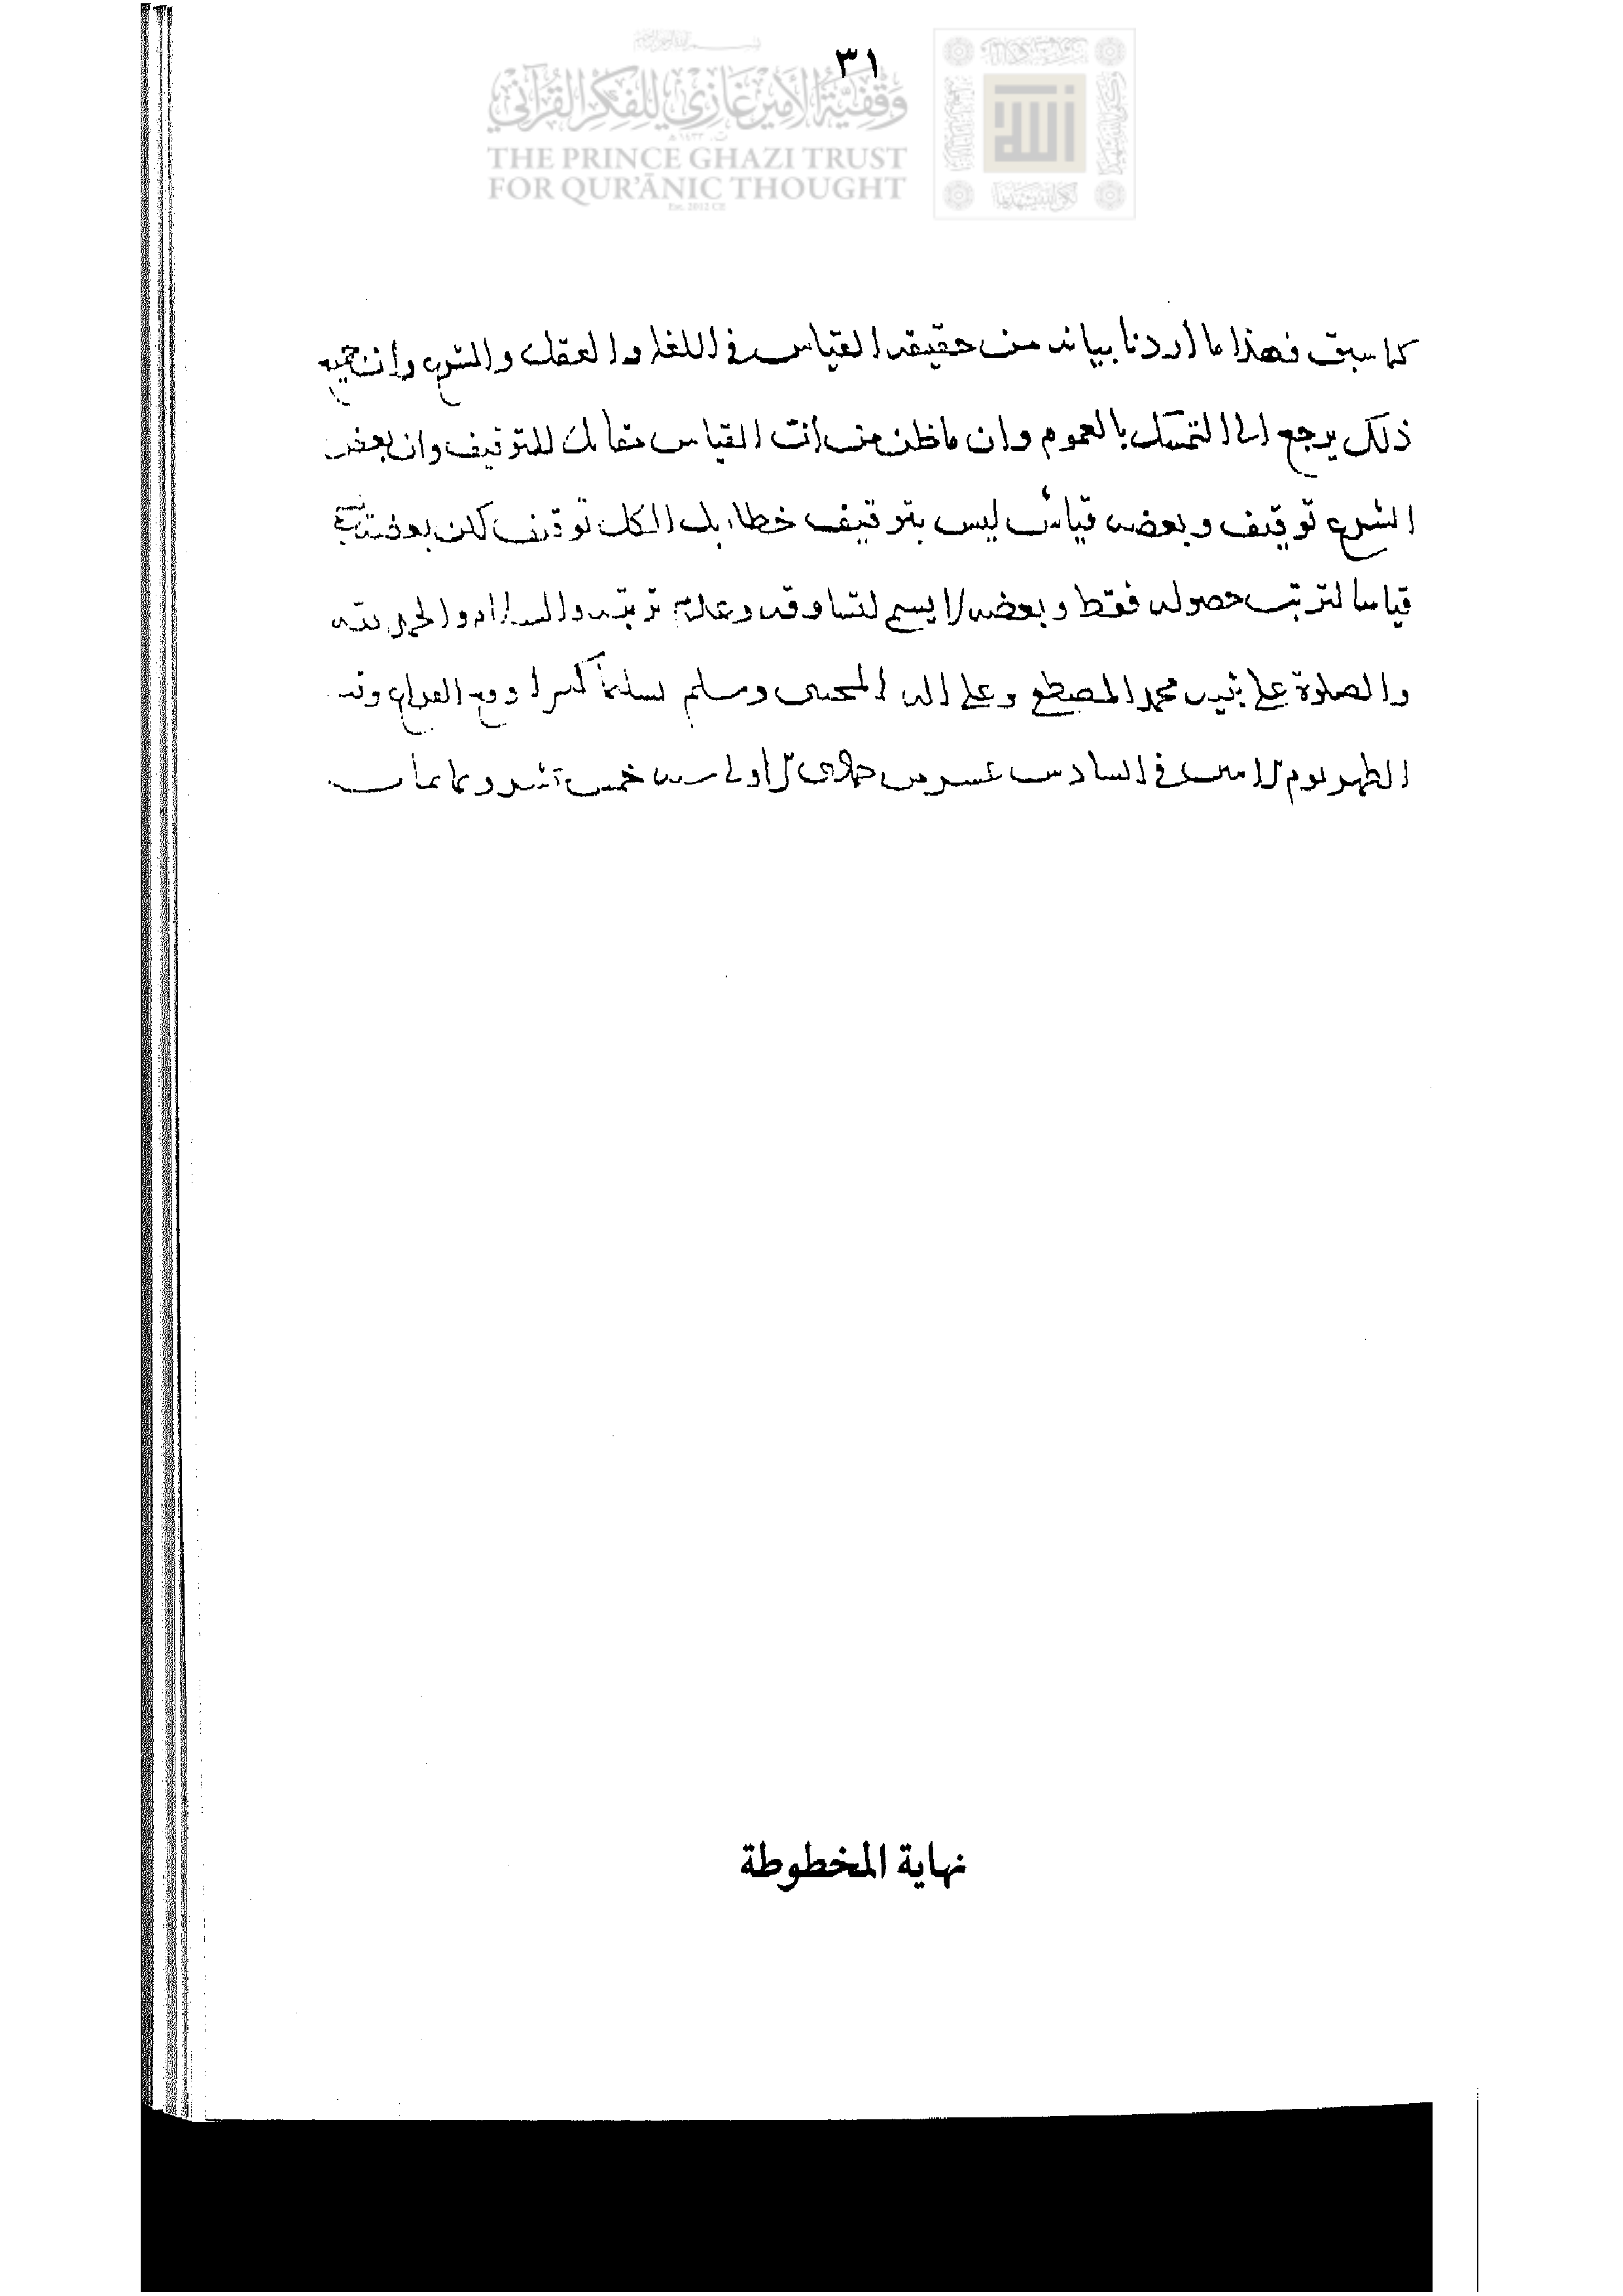 ٣١
وقفية الأمير غازي للفكر القرآني
THE PRINCE GHAZI TRUST
FOR QUR'ĀNIC THOUGHT
Est. 2012 CE
الله
كما سبق فهذا ما اردنا بيانه من حقيقة القياس في اللغة والعقل والشرع وان جميع
ذلك يرجع الى التمسك بالعموم وان ما ظن من ان القياس مقابل للتوقيف وان بعض
الشرع توقيف وبعضه قياس ليس بتوقيف خطا بل الكل توقيف لكن بعضه يسمى
قياسا لترتب حصوله فقط وبعضه لا يسمى لتساوقه وعدم ترتبه والسلام والحمد لله
والصلوة على نبيه محمد المصطفى وعلى اله وسلم تسليما كثيرا وقع الفراغ وقت
الظهر يوم الاثنين في السادس عشر من جمادى الاولى سنه خمس
نهاية المخطوطة